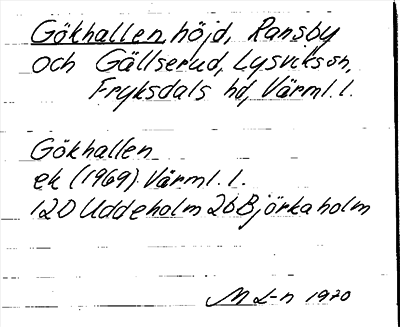 Gökhallen, höjd, Ransby
och Gällserud, Lysvikssn,
Fryksdals hd, Värml. l.
Gökhallen
ek (1969) Värml. l.
12D Uddeholm 2b Björkaholm
M L-n 1970